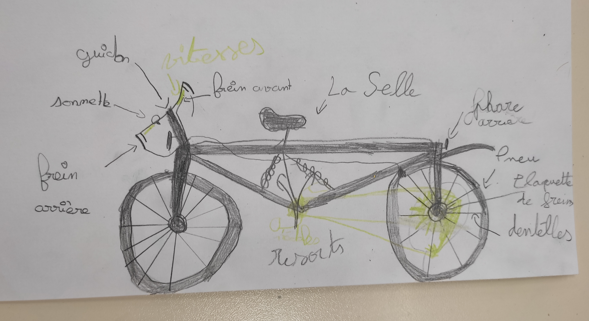 guidon
vitesses
sonnette
frein avant
La Selle
phare
arrière
frein
arrière
Pneu
Plaquette
de freins
dentelles
resorts